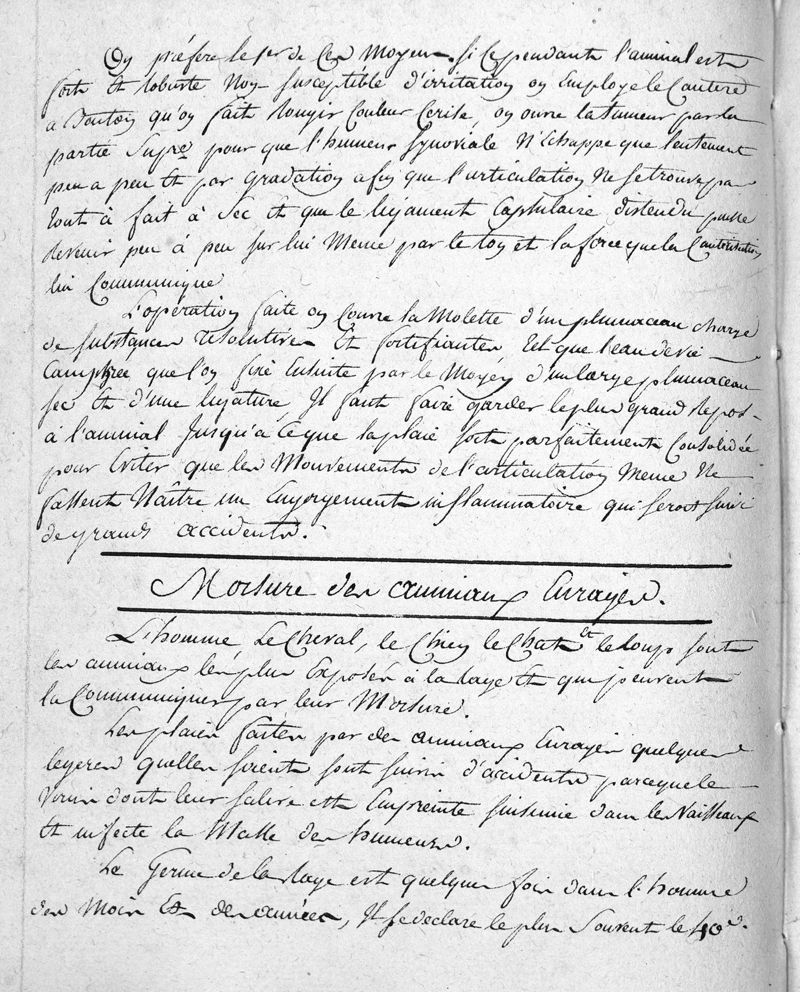 On préfère le 1er de Ces Moyens. si Cependant l'animal est
fort Et robuste Non susceptible d'irritation on Employe le Cautere
a Bouton qu'on fait Rougir Couleur Cerise, on ouvre la tumeur par la
partie Supre. pour que l'humeur synoviale N'Echappe que lentement
peu a peu Et par gradation afin que l'articulation Ne se trouve pas
tout à fait à Sec Et que le ligament Capsulaire distendu puisse
revenir peu à peu sur lui Meme par le ton et la force que la Cauterisation
lui Communique
L'opération faite on Couvre la Molette d'un plumaceau chargé
de substances résolutives Et fortifiantes tel que l'eau de vie
Camphrée que l'on fixe Ensuite par le Moyen d'un large plumaceau
sec Et d'une ligature, Il faut faire garder le plus grand Repos
à l'animal Jusqu'à Ce que la plaie soit parfaitement Consolidée
pour Eviter que les Mouvements de l'articulation Meme Ne
fassent Naître un Engorgement inflammatoire qui seroit suivi
de grands accidents.
Morsure des animaux Enragés.
L'homme, Le Cheval, le Chien le Chat et le loup sont
les animaux les plus Exposés à la rage Et qui peuvent
la Communiquer par leur Morsure.
Les plaies faites par des animaux Enragés quelques
legeres quelles soient sont suivis d'accidents parceque le
Venin dont leur salive est Empreinte s'insinue dans les Vaisseaux
Et infecte la Masse des humeurs.
Le Germe de la Rage est quelques fois dans l'homme
des Mois Et des années, Il se declare le plus Souvent le 40e.